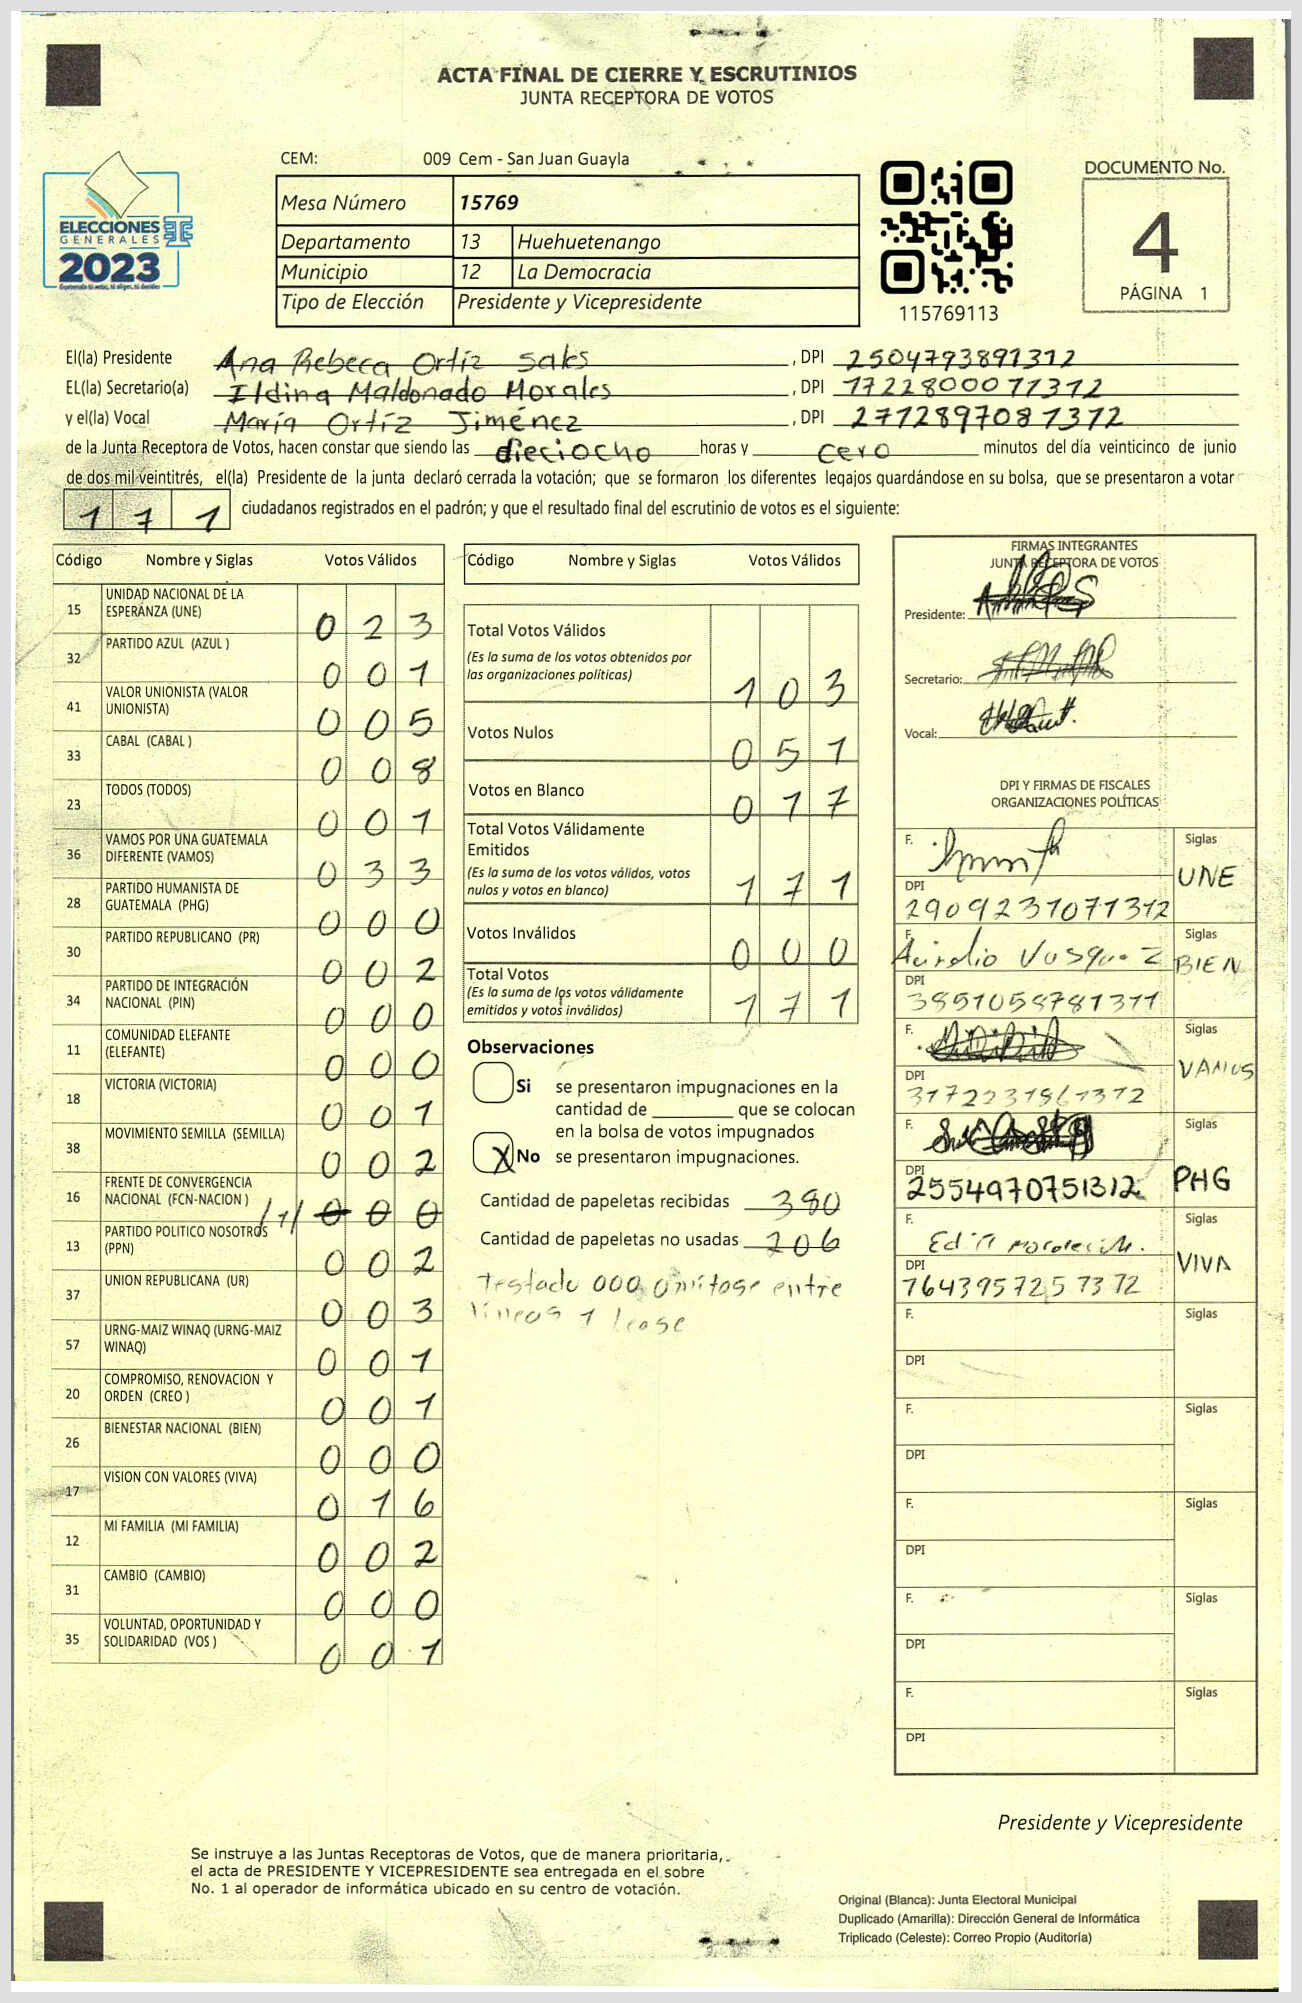 ACTA FINAL DE CIERRE Y ESCRUTINIOS
JUNTA RECEPTORA DE VOTOS
CEM: 009 Cem - San Juan Guayla
ELECCIONES
GENERALES
2023
Mesa Número 15769
Departamento 13 Huehuetenango
Municipio 12 La Democracia
Tipo de Elección Presidente y Vicepresidente
115769113
DOCUMENTO No.
4
PÁGINA 1
El(la) Presidente Ana Rebeca Ortíz Sales, DPI 2504793891312
EL(la) Secretario(a) Ildina Maldonado Morales, DPI 1722800071312
y el(la) Vocal María Ortíz Jiménez, DPI 2712897081312
de la Junta Receptora de Votos, hacen constar que siendo las dieciocho horas y cero minutos del día veinticinco de junio
de dos mil veintitrés, el(la) Presidente de la junta declaró cerrada la votación; que se formaron los diferentes legajos guardándose en su bolsa, que se presentaron a votar
171 ciudadanos registrados en el padrón; y que el resultado final del escrutinio de votos es el siguiente:
Código Nombre y Siglas Votos Válidos
15 UNIDAD NACIONAL DE LA
ESPERANZA (UNE) 023
32 PARTIDO AZUL (AZUL ) 001
41 VALOR UNIONISTA (VALOR
UNIONISTA) 005
33 CABAL (CABAL ) 008
23 TODOS (TODOS) 001
36 VAMOS POR UNA GUATEMALA
DIFERENTE (VAMOS) 033
28 PARTIDO HUMANISTA DE
GUATEMALA (PHG) 000
30 PARTIDO REPUBLICANO (PR) 002
34 PARTIDO DE INTEGRACIÓN
NACIONAL (PIN) 000
11 COMUNIDAD ELEFANTE
(ELEFANTE) 000
18 VICTORIA (VICTORIA) 001
38 MOVIMIENTO SEMILLA (SEMILLA) 002
16 FRENTE DE CONVERGENCIA
NACIONAL (FCN-NACION ) /1/ 000
13 PARTIDO POLITICO NOSOTROS
(PPN) 002
37 UNION REPUBLICANA (UR) 003
57 URNG-MAIZ WINAQ (URNG-MAIZ
WINAQ) 001
20 COMPROMISO, RENOVACION Y
ORDEN (CREO ) 001
26 BIENESTAR NACIONAL (BIEN) 000
17 VISION CON VALORES (VIVA) 016
12 MI FAMILIA (MI FAMILIA) 002
31 CAMBIO (CAMBIO) 000
35 VOLUNTAD, OPORTUNIDAD Y
SOLIDARIDAD (VOS ) 001
Código Nombre y Siglas Votos Válidos
Total Votos Válidos
(Es la suma de los votos obtenidos por
las organizaciones políticas) 103
Votos Nulos 051
Votos en Blanco 017
Total Votos Válidamente
Emitidos
(Es la suma de los votos válidos, votos
nulos y votos en blanco) 171
Votos Inválidos 000
Total Votos
(Es la suma de los votos válidamente
emitidos y votos inválidos) 171
Observaciones
Si se presentaron impugnaciones en la
cantidad de ________ que se colocan
en la bolsa de votos impugnados
X No se presentaron impugnaciones.
Cantidad de papeletas recibidas 380
Cantidad de papeletas no usadas 206
Testado 000 Omitase entre
lineas 1 lease
FIRMAS INTEGRANTES
JUNTA RECEPTORA DE VOTOS
Presidente:
Secretario:
Vocal:
DPI Y FIRMAS DE FISCALES
ORGANIZACIONES POLÍTICAS
F. Siglas
UNE
DPI
2909231071312
F. Aurelio Vasquez Siglas
BIEN
DPI
3851058781311
F. Siglas
VAMOS
DPI
3172231861312
F. Siglas
PHG
DPI
2554970751312
F. Siglas
VIVA
DPI
1643957251312
F. Siglas
DPI
F. Siglas
DPI
F. Siglas
DPI
F. Siglas
DPI
F. Siglas
DPI
Presidente y Vicepresidente
Se instruye a las Juntas Receptoras de Votos, que de manera prioritaria,
el acta de PRESIDENTE Y VICEPRESIDENTE sea entregada en el sobre
No. 1 al operador de informática ubicado en su centro de votación.
Original (Blanca): Junta Electoral Municipal
Duplicado (Amarilla): Dirección General de Informática
Triplicado (Celeste): Correo Propio (Auditoría)